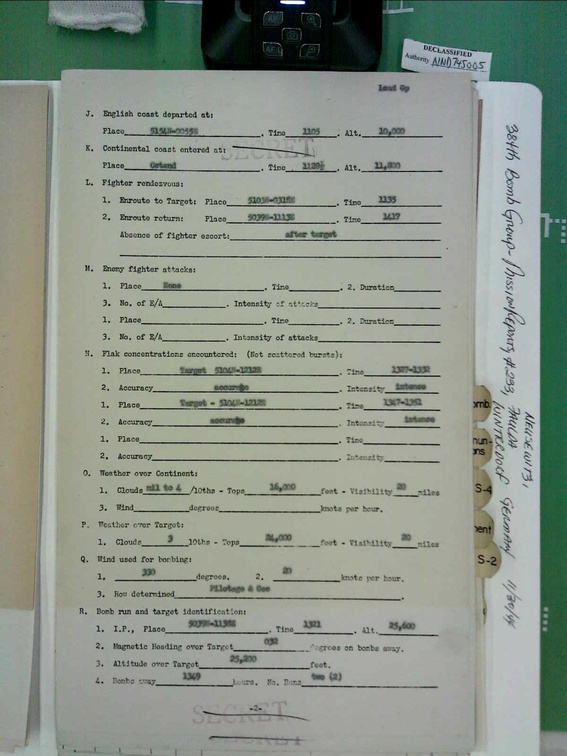 DECLASSIFIED
Authority NND745005
Lead Gp
J. English coast departed at:
Place 5154N-0055E. Time 1105. Alt. 10,000
K. Continental coast entered at:
SECRET
Place Ostend, Time 1129½, Alt. 11,800
L. Fighter rendezvous:
1. Enroute to Target: Place, Time 1135
2. Enroute return: Place 5039N-1113E, Time 1417
Absence of fighter escort: after target
M. Enemy fighter attacks:
1. Place None, Time. 2. Duration
3. No. of E/A. Intensity of attacks
1. Place, Time. 2. Duration
3. No. of E/A. Intensity of attacks
N. Flak concentrations encountered: (Not scattered bursts):
1. Place Target 5104N-1212E. Time 1327-1332
2. Accuracy accurate. Intensity intense
1. Place Target - 5104N-1212E. Time 1347-1351
2. Accuracy accurate. Intensity intense
1. Place. Time
2. Accuracy. Intensity
O. Weather over Continent:
1. Clouds nil to 4 /10ths - Tops 16,000 feet - Visibility 20 miles
3. Wind degrees knots per hour.
P. Weather over Target:
1. Clouds 3 10ths - Tops 24,000 feet - Visibility 20 miles
Q. Wind used for bombing:
1. 330 degrees. 2. 20 knots per hour.
3. How determined Pilotage & Gee.
R. Bomb run and target identification:
1. I.P., Place 5039N-1138E. Time 1321. Alt. 25,600
2. Magnetic Heading over Target 032 degrees on bombs away.
3. Altitude over Target 25,200 feet.
4. Bombs away 1349 hours. No. Runs two (2)
-2-
SECRET
SECRET
384th Bomb Group - Mission Reports, #293,
NEUSEWITZ,
GERMANY 11/30/44
omb.
mun-
ns
S-4
ment
S-2